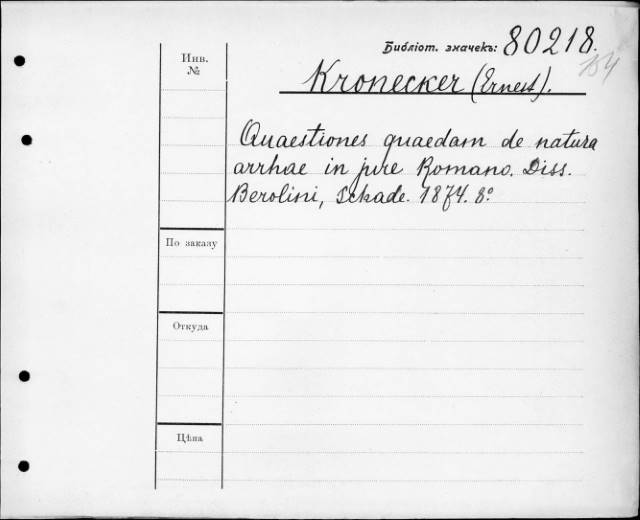 Библіот. значекъ: 80218.
154
Инв.
№
Kronecker (Ernest).
Quaestiones quaedam de natura
arrhae in jure Romano. Diss.
Berolini, Schade. 1874. 8º
По заказу
Откуда
Цѣна